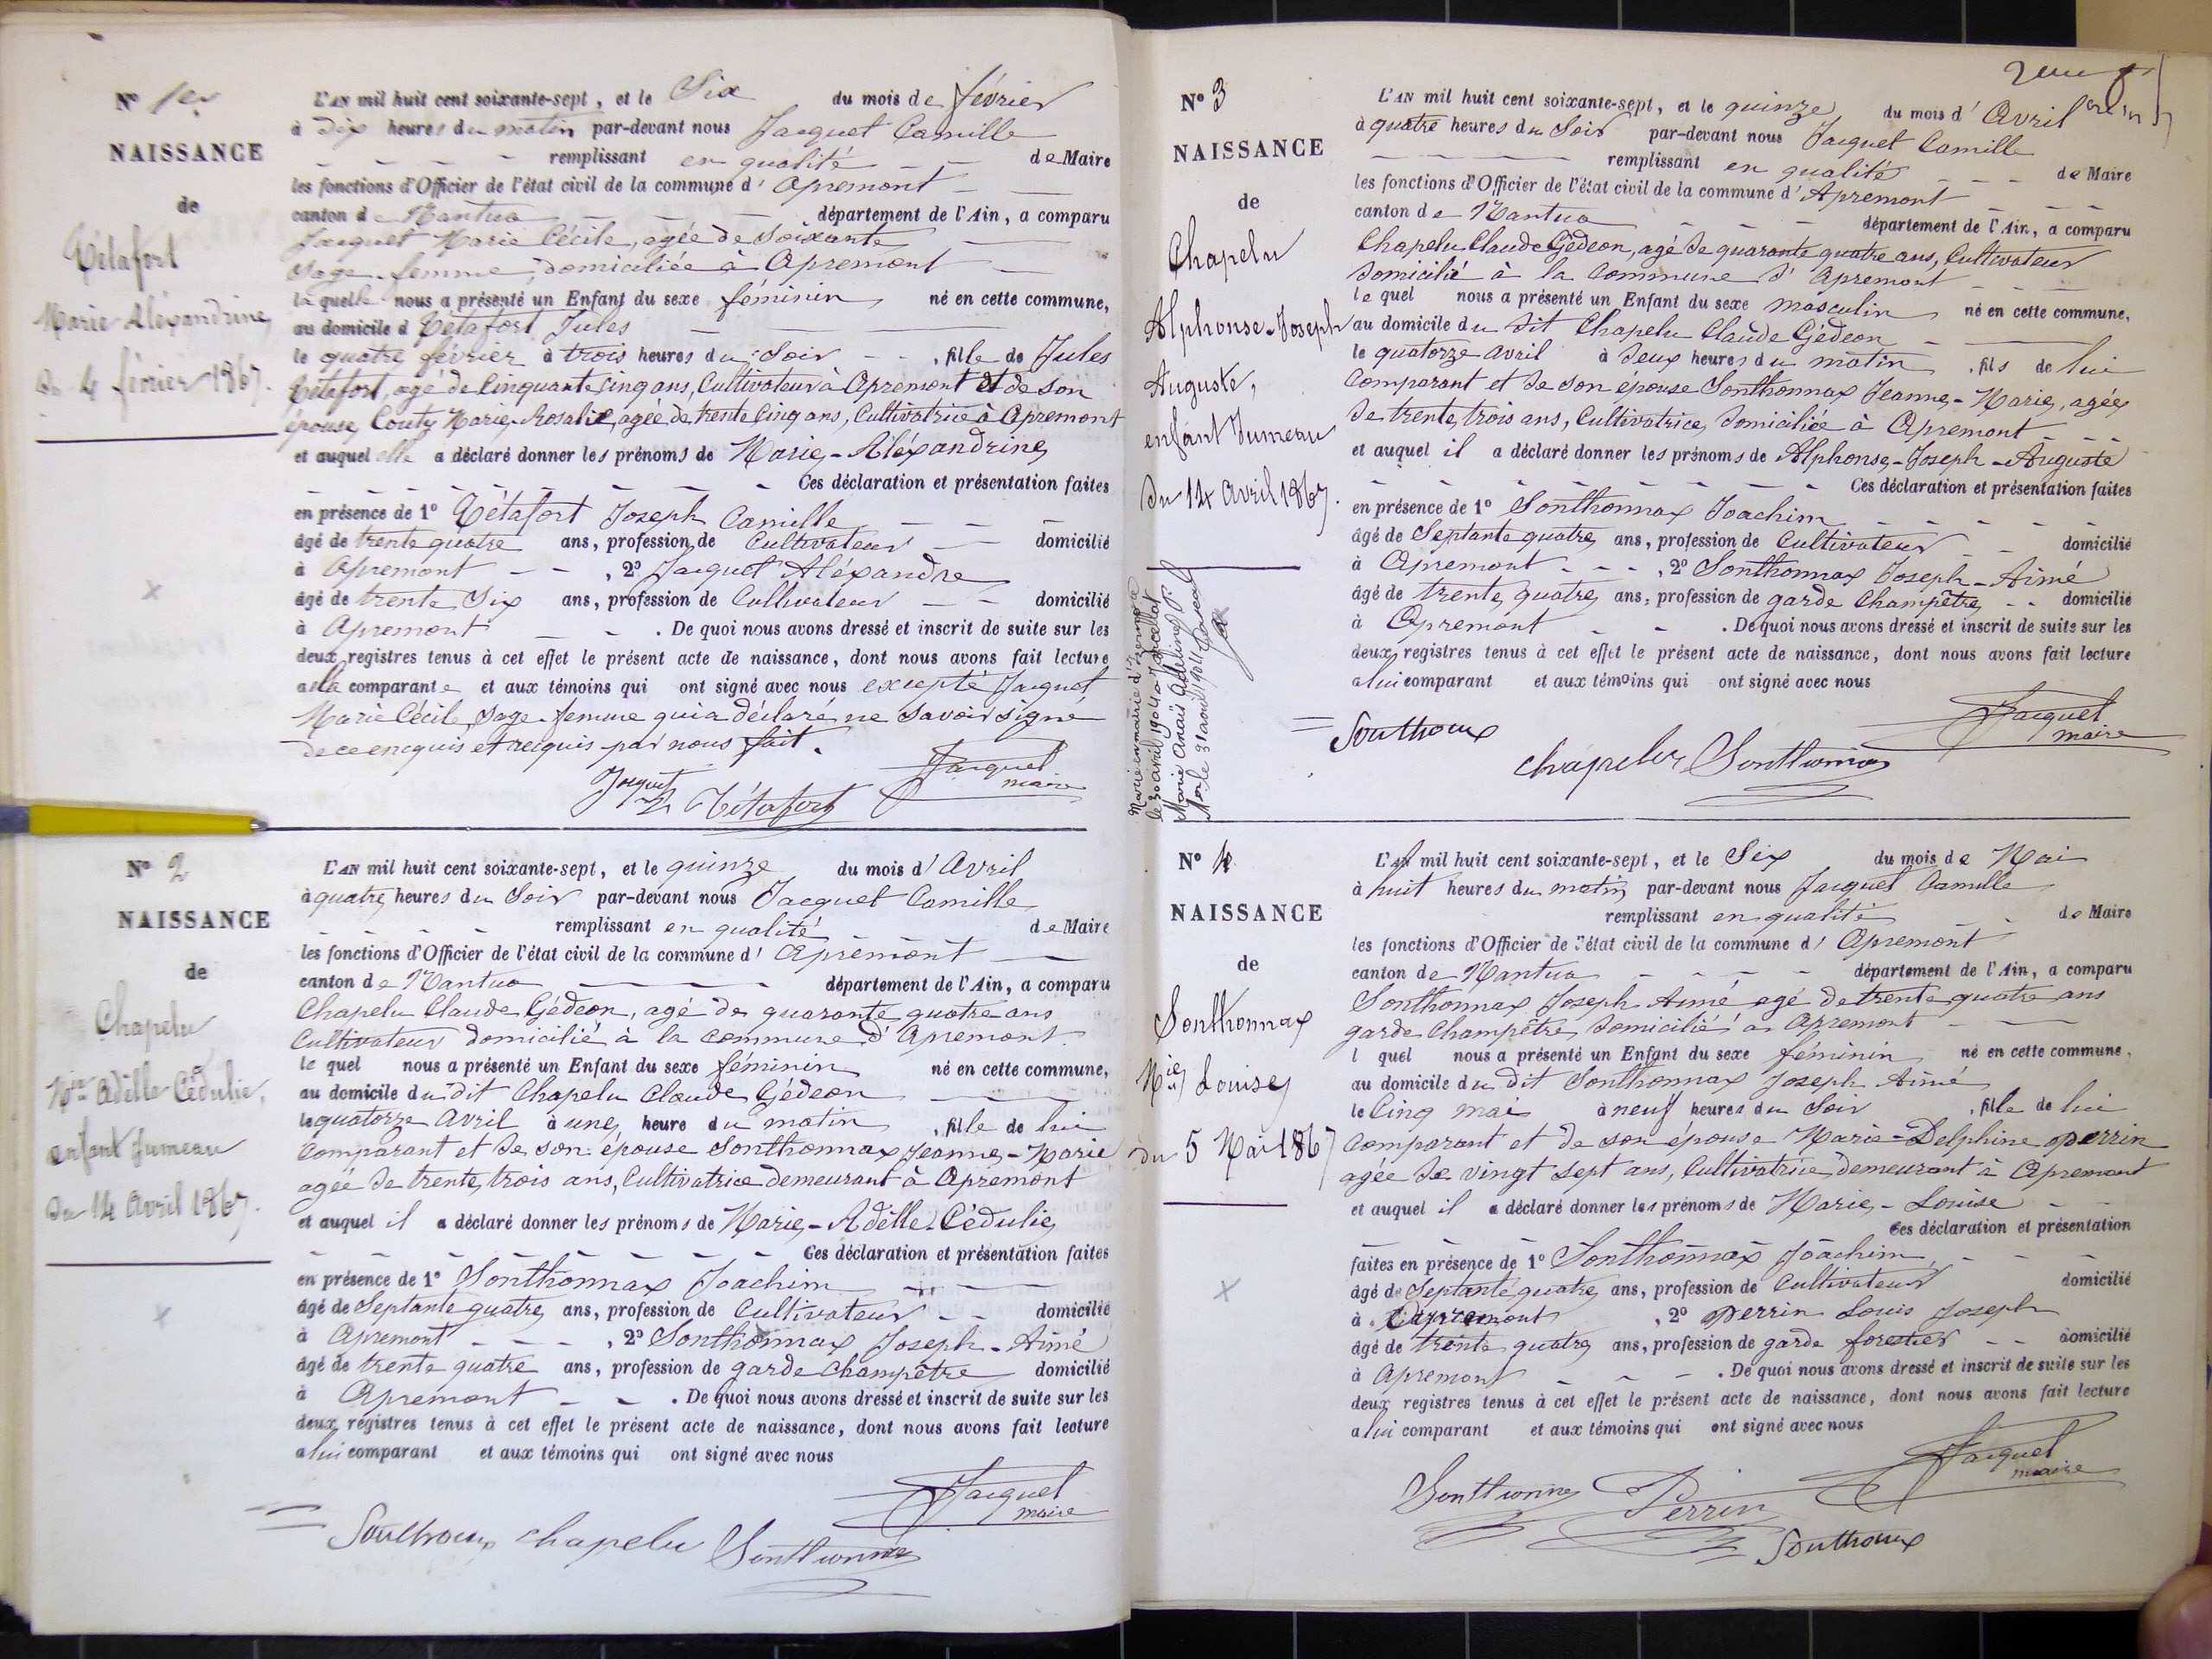 Nº 1er
NAISSANCE
de
Tétafort
Marie Aléxandrine
du 4 février 1867.
L'AN mil huit cent soixante-sept, et le Six du mois de février
à dix heures du matin par-devant nous Jacquet Camille
remplissant en qualité de Maire
les fonctions d'Officier de l'état civil de la commune d' Apremont
canton de Nantua département de l'Ain, a comparu
Jacquet Marie Cécile, agée de Soixante
Sage-femme, domiciliée à Apremont
la quelle nous a présenté un Enfant du sexe féminin né en cette commune,
au domicile d Tétafort Jules
le quatre février à trois heures du Soir, fille de Jules
Tétafort, agé de Cinquante Cinq ans, Cultivateur à Apremont et de son
épouse Couty Marie-Rosalie, agée de trente Cinq ans, Cultivatrice à Apremont
et auquel elle a déclaré donner les prénoms de Marie-Aléxandrine
Ces déclaration et présentation faites
en présence de 1º Tétafort Joseph Camille
âgé de trente quatre ans, profession de Cultivateur domicilié
à Apremont, 2º Jacquet Aléxandre
âgé de trente Six ans, profession de Cultivateur domicilié
à Apremont. De quoi nous avons dressé et inscrit de suite sur les
deux registres tenus à cet effet le présent acte de naissance, dont nous avons fait lecture
a la comparante et aux témoins qui ont signé avec nous excepté Jacquet
Marie Cécile, Sage-femme qui a déclaré ne Savoir signé
de ce encquis et recquis par nous fait.
Jacquet Tétafort Jacquet
maire
Nº 2
NAISSANCE
de
Chapelu
Mie Adélle Cédulie,
enfant Jumeau
du 14 Avril 1867.
L'AN mil huit cent soixante-sept, et le quinze du mois d' Avril
à quatre heures du Soir par-devant nous Jacquet Camille
remplissant en qualité de Maire
les fonctions d'Officier de l'état civil de la commune d' Apremont
canton de Nantua département de l'Ain, a comparu
Chapelu Claude Gédeon, agé de quarante quatre ans
Cultivateur domicilié à la commune d'Apremont.
le quel nous a présenté un Enfant du sexe féminin né en cette commune,
au domicile du dit Chapelu Claude Gédeon
le quatorze Avril à une heure du matin, fille de lui
Comparant et de son épouse Sonthonnax Jeanne-Marie
agée de trente trois ans, Cultivatrice demeurant à Apremont
et auquel il a déclaré donner les prénoms de Marie-Adélle-Cédulie
Ces déclaration et présentation faites
en présence de 1º Sonthonnax Joachim
âgé de Septante quatre ans, profession de Cultivateur domicilié
à Apremont, 2º Sonthonnax Joseph-Aimé
âgé de trente quatre ans, profession de garde Champêtre domicilié
à Apremont. De quoi nous avons dressé et inscrit de suite sur les
deux registres tenus à cet effet le présent acte de naissance, dont nous avons fait lecture
a lui comparant et aux témoins qui ont signé avec nous
Jacquet
maire
Sonthonax chapelu Sonthonnax
Nº 3
NAISSANCE
de
Chapelu
Alphonse-Joseph
Auguste,
enfant Jumeau
du 14 Avril 1867.
Marie Anaïs Adeline
L'AN mil huit cent soixante-sept, et le quinze du mois d' Avril
à quatre heures du Soir par-devant nous Jacquet Camille
remplissant en qualité de Maire
les fonctions d'Officier de l'état civil de la commune d' Apremont
canton de Nantua département de l'Ain, a comparu
Chapelu Claude Gédeon, agé de quarante quatre ans, Cultivateur
domicilié à la Commune d'Apremont
le quel nous a présenté un Enfant du sexe masculin né en cette commune,
au domicile du dit Chapelu Claude Gédeon
le quatorze avril à deux heures du matin, fils de lui
Comparant et de son épouse Sonthonnax Jeanne-Marie, agée
de trente trois ans, Cultivatrice, domiciliée à Apremont
et auquel il a déclaré donner les prénoms de Alphonse-Joseph-Auguste
Ces déclaration et présentation faites
en présence de 1º Sonthonnax Joachim
âgé de Septante quatre ans, profession de Cultivateur domicilié
à Apremont, 2º Sonthonnax Joseph-Aimé
âgé de trente quatre ans, profession de garde Champêtre domicilié
à Apremont. De quoi nous avons dressé et inscrit de suite sur les
deux registres tenus à cet effet le présent acte de naissance, dont nous avons fait lecture
a lui comparant et aux témoins qui ont signé avec nous
Jacquet
maire
Sonthonax chapelu Sonthonnax
Nº 4
NAISSANCE
de
Sonthonnax
Mie Louise
du 5 Mai 1867
L'AN mil huit cent soixante-sept, et le Six du mois de Mai
à huit heures du matin par-devant nous Jacquet Camille
remplissant en qualité de Maire
les fonctions d'Officier de l'état civil de la commune d' Apremont
canton de Nantua département de l'Ain, a comparu
Sonthonnax Joseph-Aimé agé de trente quatre ans
garde Champêtre domicilié à Apremont
l quel nous a présenté un Enfant du sexe féminin né en cette commune,
au domicile du dit Sonthonnax Joseph Aimé
le Cinq mai à neuf heures du Soir, fille de lui
Comparant et de son épouse Marie-Delphine perrin
agée de vingt sept ans, Cultivatrice demeurant à Apremont
et auquel il a déclaré donner les prénoms de Marie-Louise
Ces déclaration et présentation
faites en présence de 1º Sonthonnax Joachim
âgé de Septante quatre ans, profession de Cultivateur domicilié
à Apremont, 2º perrin Louis Joseph
âgé de trente quatre ans, profession de garde forestier domicilié
à Apremont. De quoi nous avons dressé et inscrit de suite sur les
deux registres tenus à cet effet le présent acte de naissance, dont nous avons fait lecture
a lui comparant et aux témoins qui ont signé avec nous
Jacquet
maire
Sonthonnax Perrin
Sonthonax